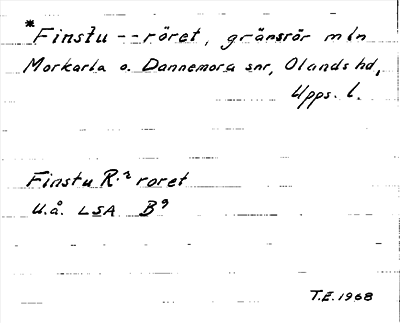 *Finstu -- röret, gränsrör mln
Morkarla o. Dannemora snr, Olands hd,
Upps. l.
Finstu R.r roret
U.å. LSA B9
T.E. 1968